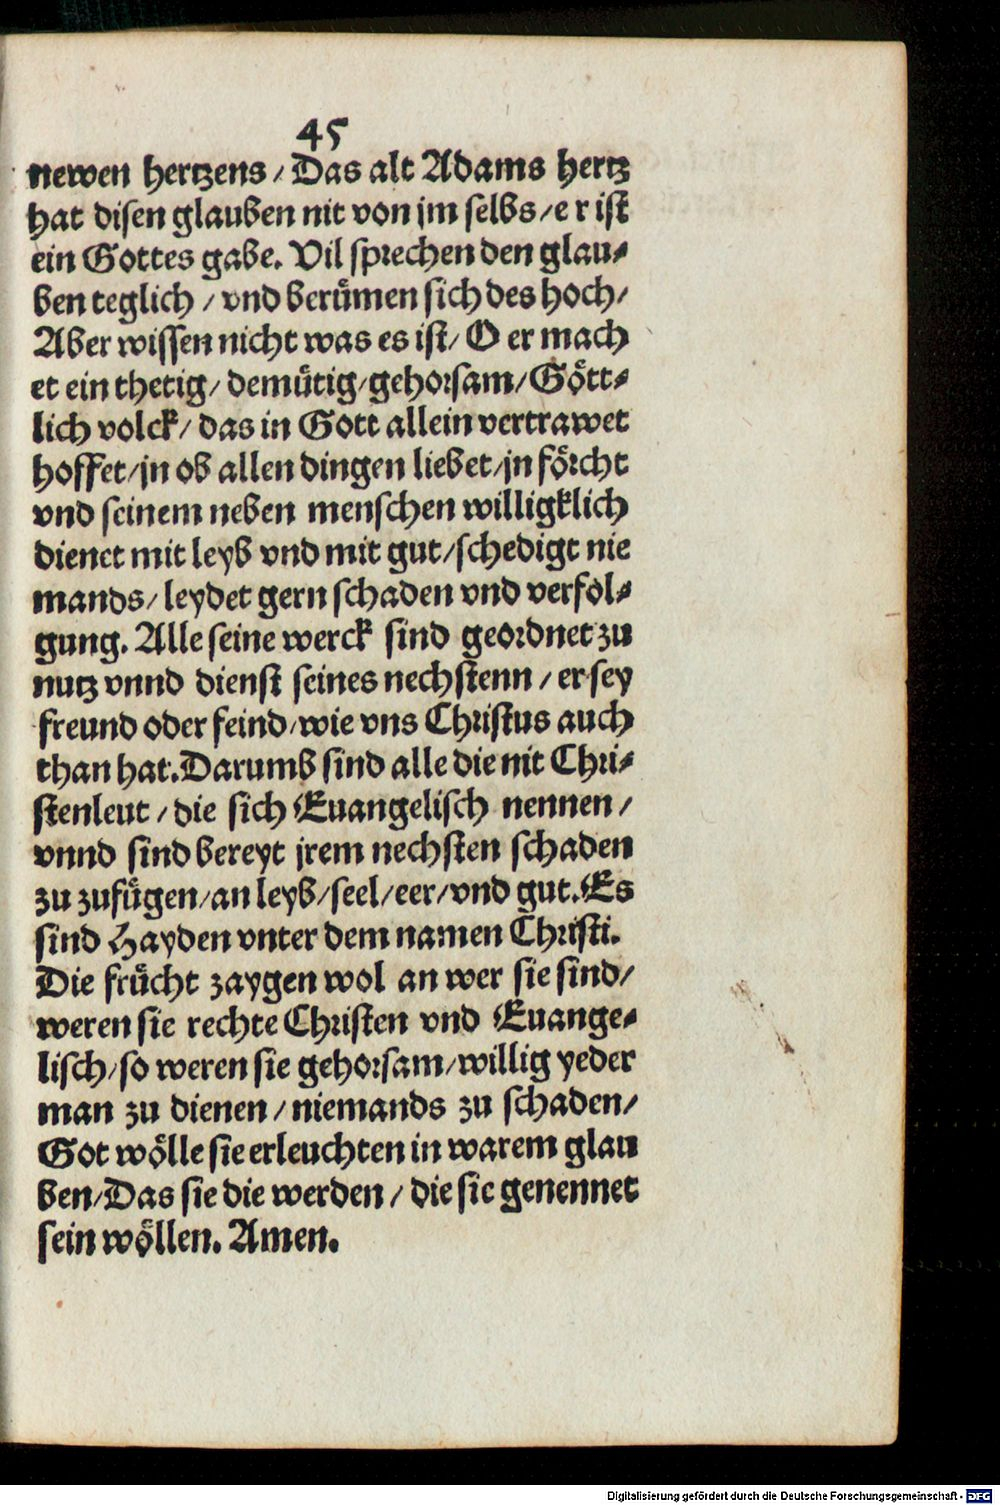 45
newen hertzens / Das alt Adams hertz
hat disen glauben nit von jm selbs / e r ist
ein Gottes gabe. Vil sprechen den glau-
ben teglich / vnd berümen sich des hoch /
Aber wissen nicht was es ist / O er mach
et ein thetig / demütig / gehorsam / Gött-
lich volck / das in Gott allein vertrawet
hoffet / jn ob allen dingen liebet / jn förcht
vnd seinem neben menschen willigklich
dienet mit leyb vnd mit gut / schedigt nie
mands / leydet gern schaden vnd verfol-
gung. Alle seine werck sind geordnet zu
nutz vnnd dienst seines nechstenn / er sey
freund oder feind / wie vns Christus auch
than hat. Darumb sind alle die nit Chri-
stenleut / die sich Euangelisch nennen /
vnnd sind bereyt jrem nechsten schaden
zu zufügen / an leyb / seel / eer / vnd gut. Es
sind Hayden vnter dem namen Christi.
Die frücht zaygen wol an wer sie sind /
weren sie rechte Christen vnd Euange-
lisch / so weren sie gehorsam / willig yeder
man zu dienen / niemands zu schaden /
Got wölle sie erleuchten in warem glau
ben / Das sie die werden / die sie genennet
sein wöllen. Amen.
Digitalisierung gefördert durch die Deutsche Forschungsgemeinschaft - DFG